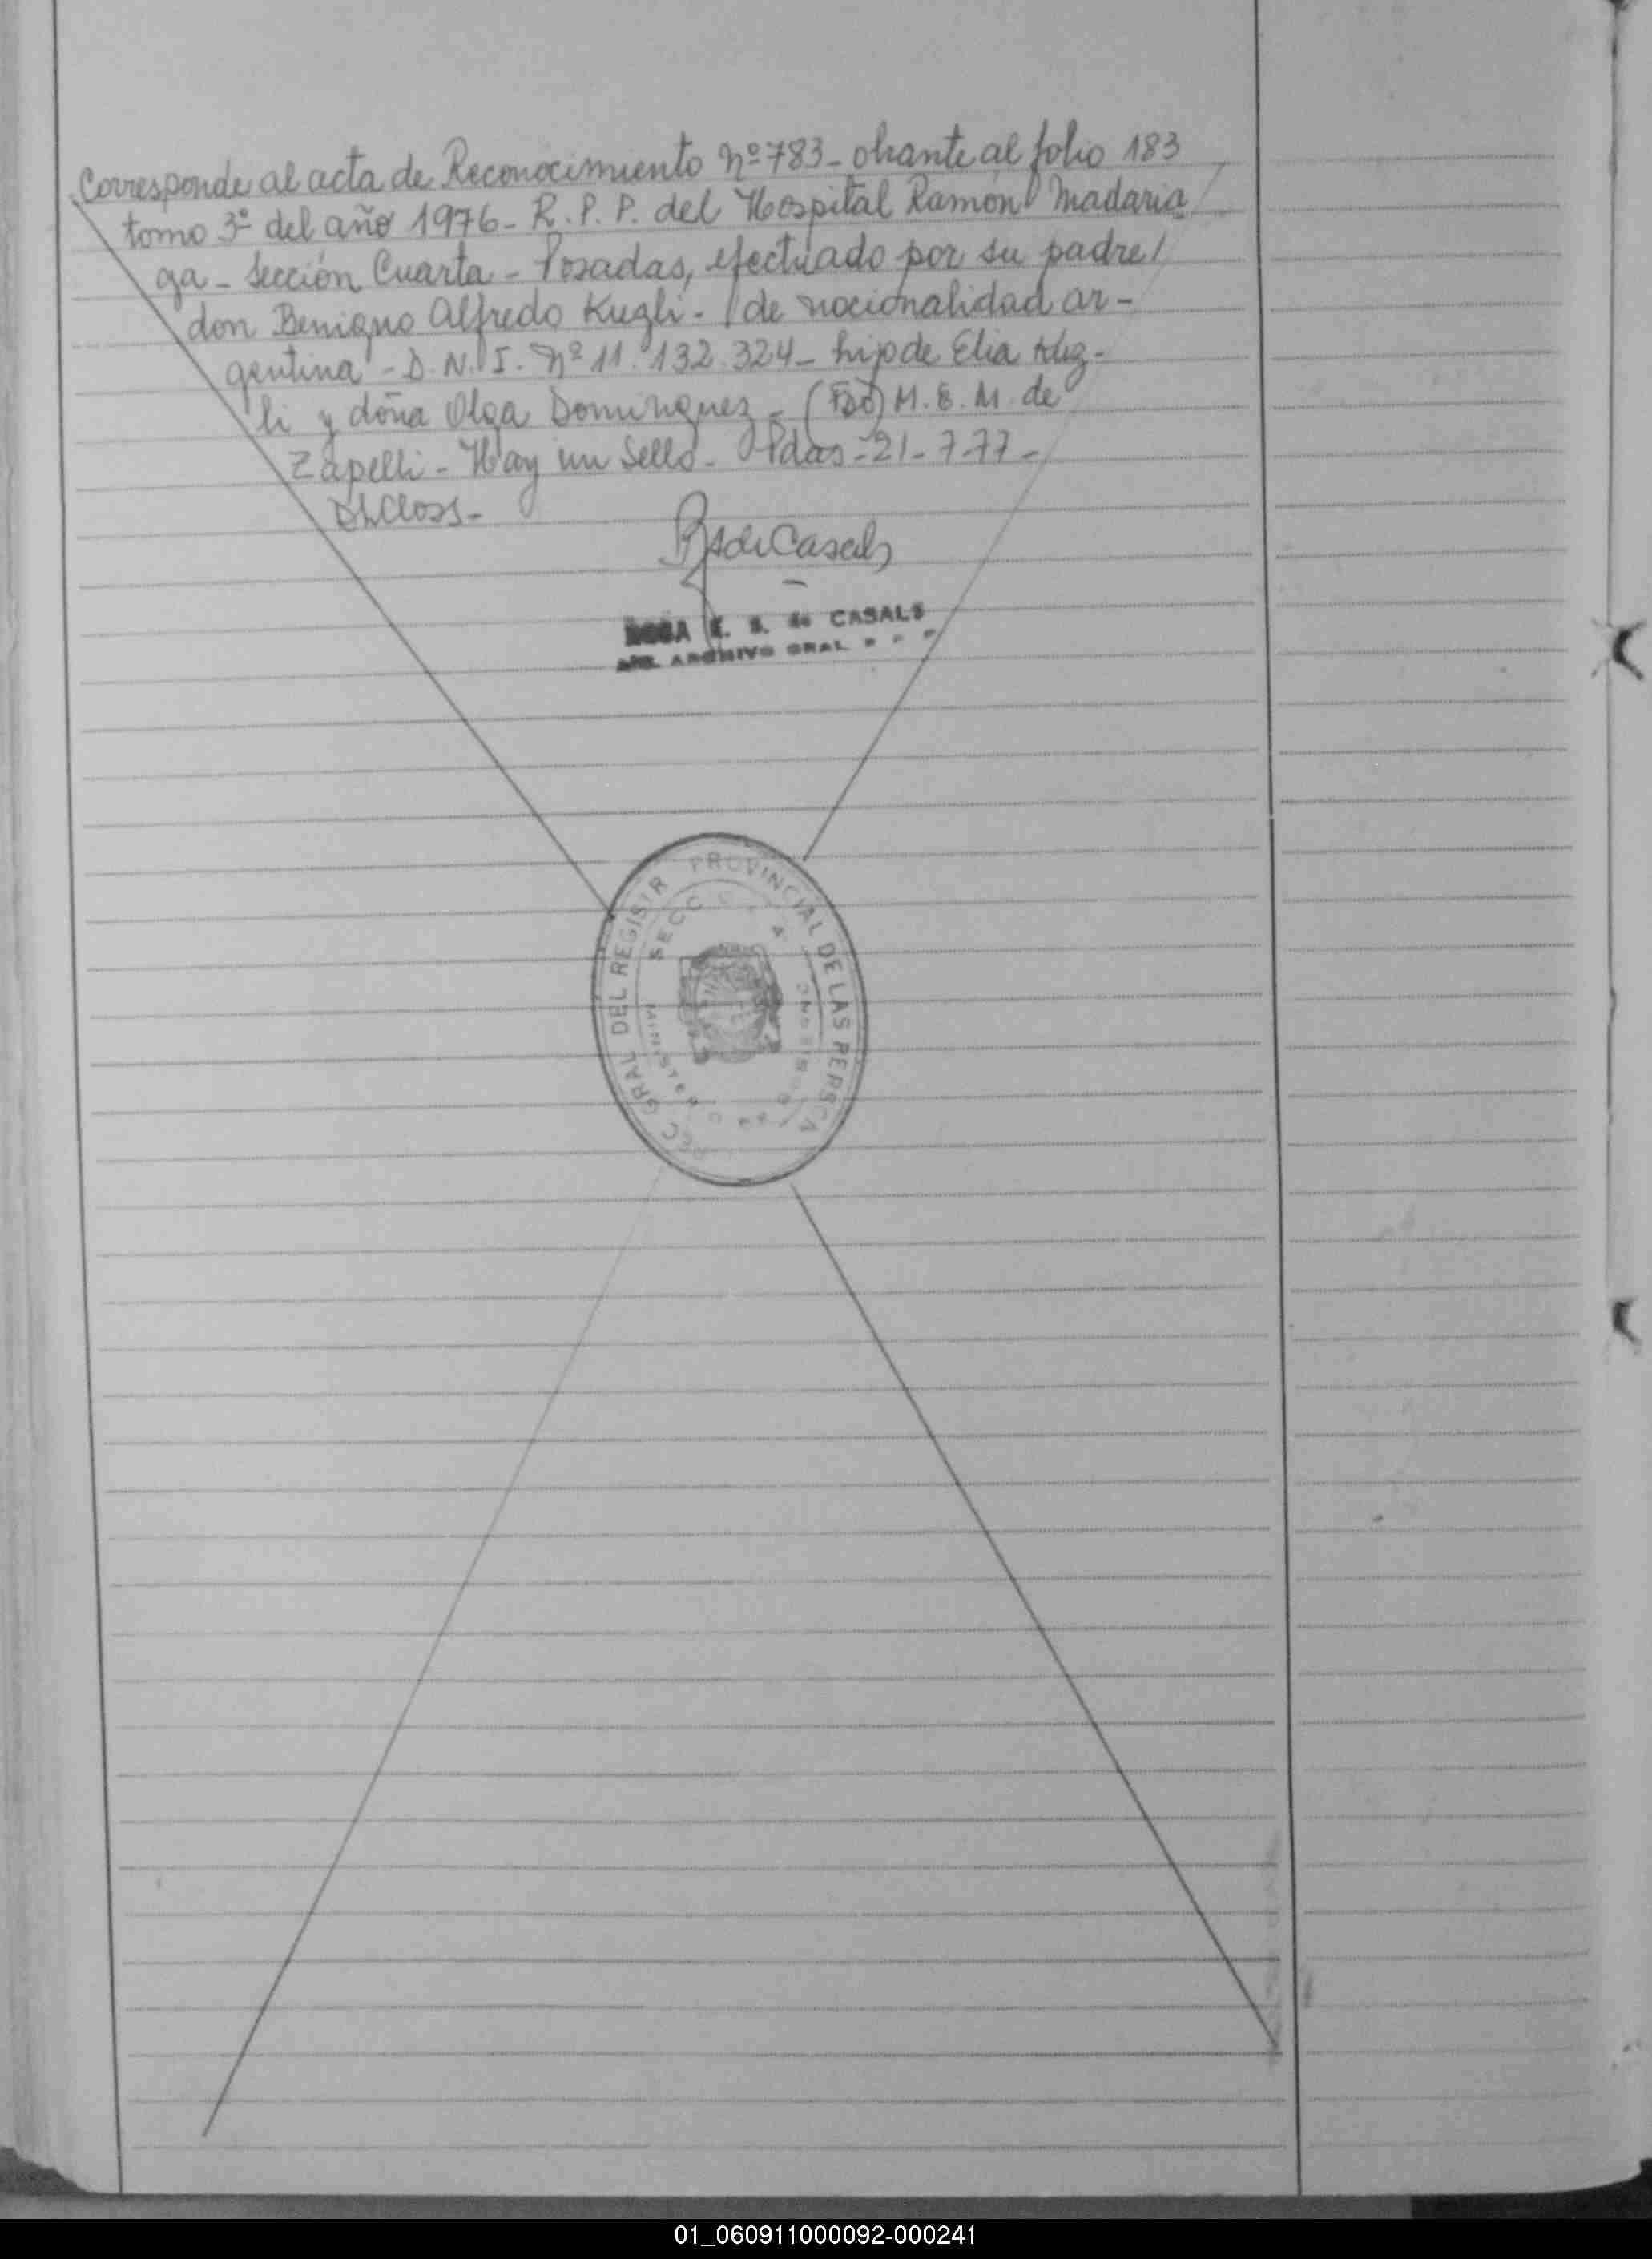 Corresponde al acta de Reconocimiento Nº 783 - obrante al folio 183
tomo 3º del año 1976 - R. P. P. del Hospital Ramón Madaria
ga - Sección Cuarta - Posadas, efectuado por su padre/
don Benigno Alfredo Kugli - de nacionalidad ar-
gentina - D. N. I. Nº 11.132.324 - hijo de Elia Kug-
li y doña Olga Dominguez - (Fdo) M. E. M. de
Zapelli - Hay un Sello - Pdas - 21-7-77 -
de Casals
E. S. de CASALS
ARCHIVO GRAL
GRAL DEL REGISTR PROVINCIAL DE LAS PERSO
SECC
01_060911000092-000241